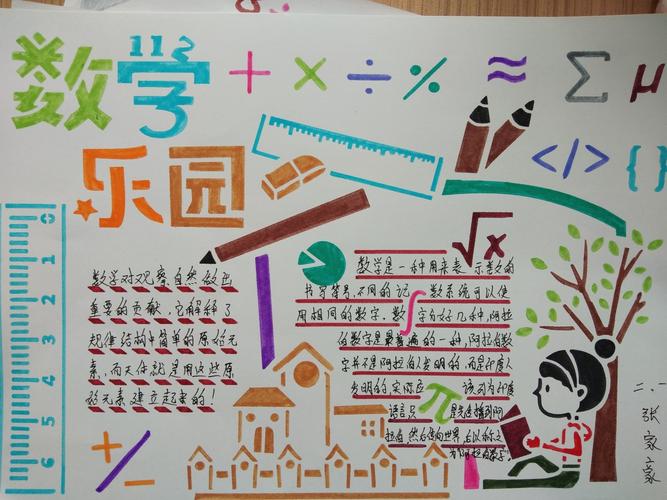 数学
乐园
112
+ × ÷ % ≈ Σ μ
</> { }
√x
0
1
2
3
4
5
6
数学对观察自然做出
重要的贡献,它解释了
规律结构中简单的原始元
素,而天体就是用这些原
始元素建立起来的!
数学是一种用来表示数的
书写符号,不同的记数系统可以使
用相同的数字,数字有好几种,阿拉
伯数字是最普遍的一种,阿拉伯数
字并不是阿拉伯人发明的,而是印度人
发明的,实际应该列为印度
语言
π
∫
+ / −
二.一
张
家